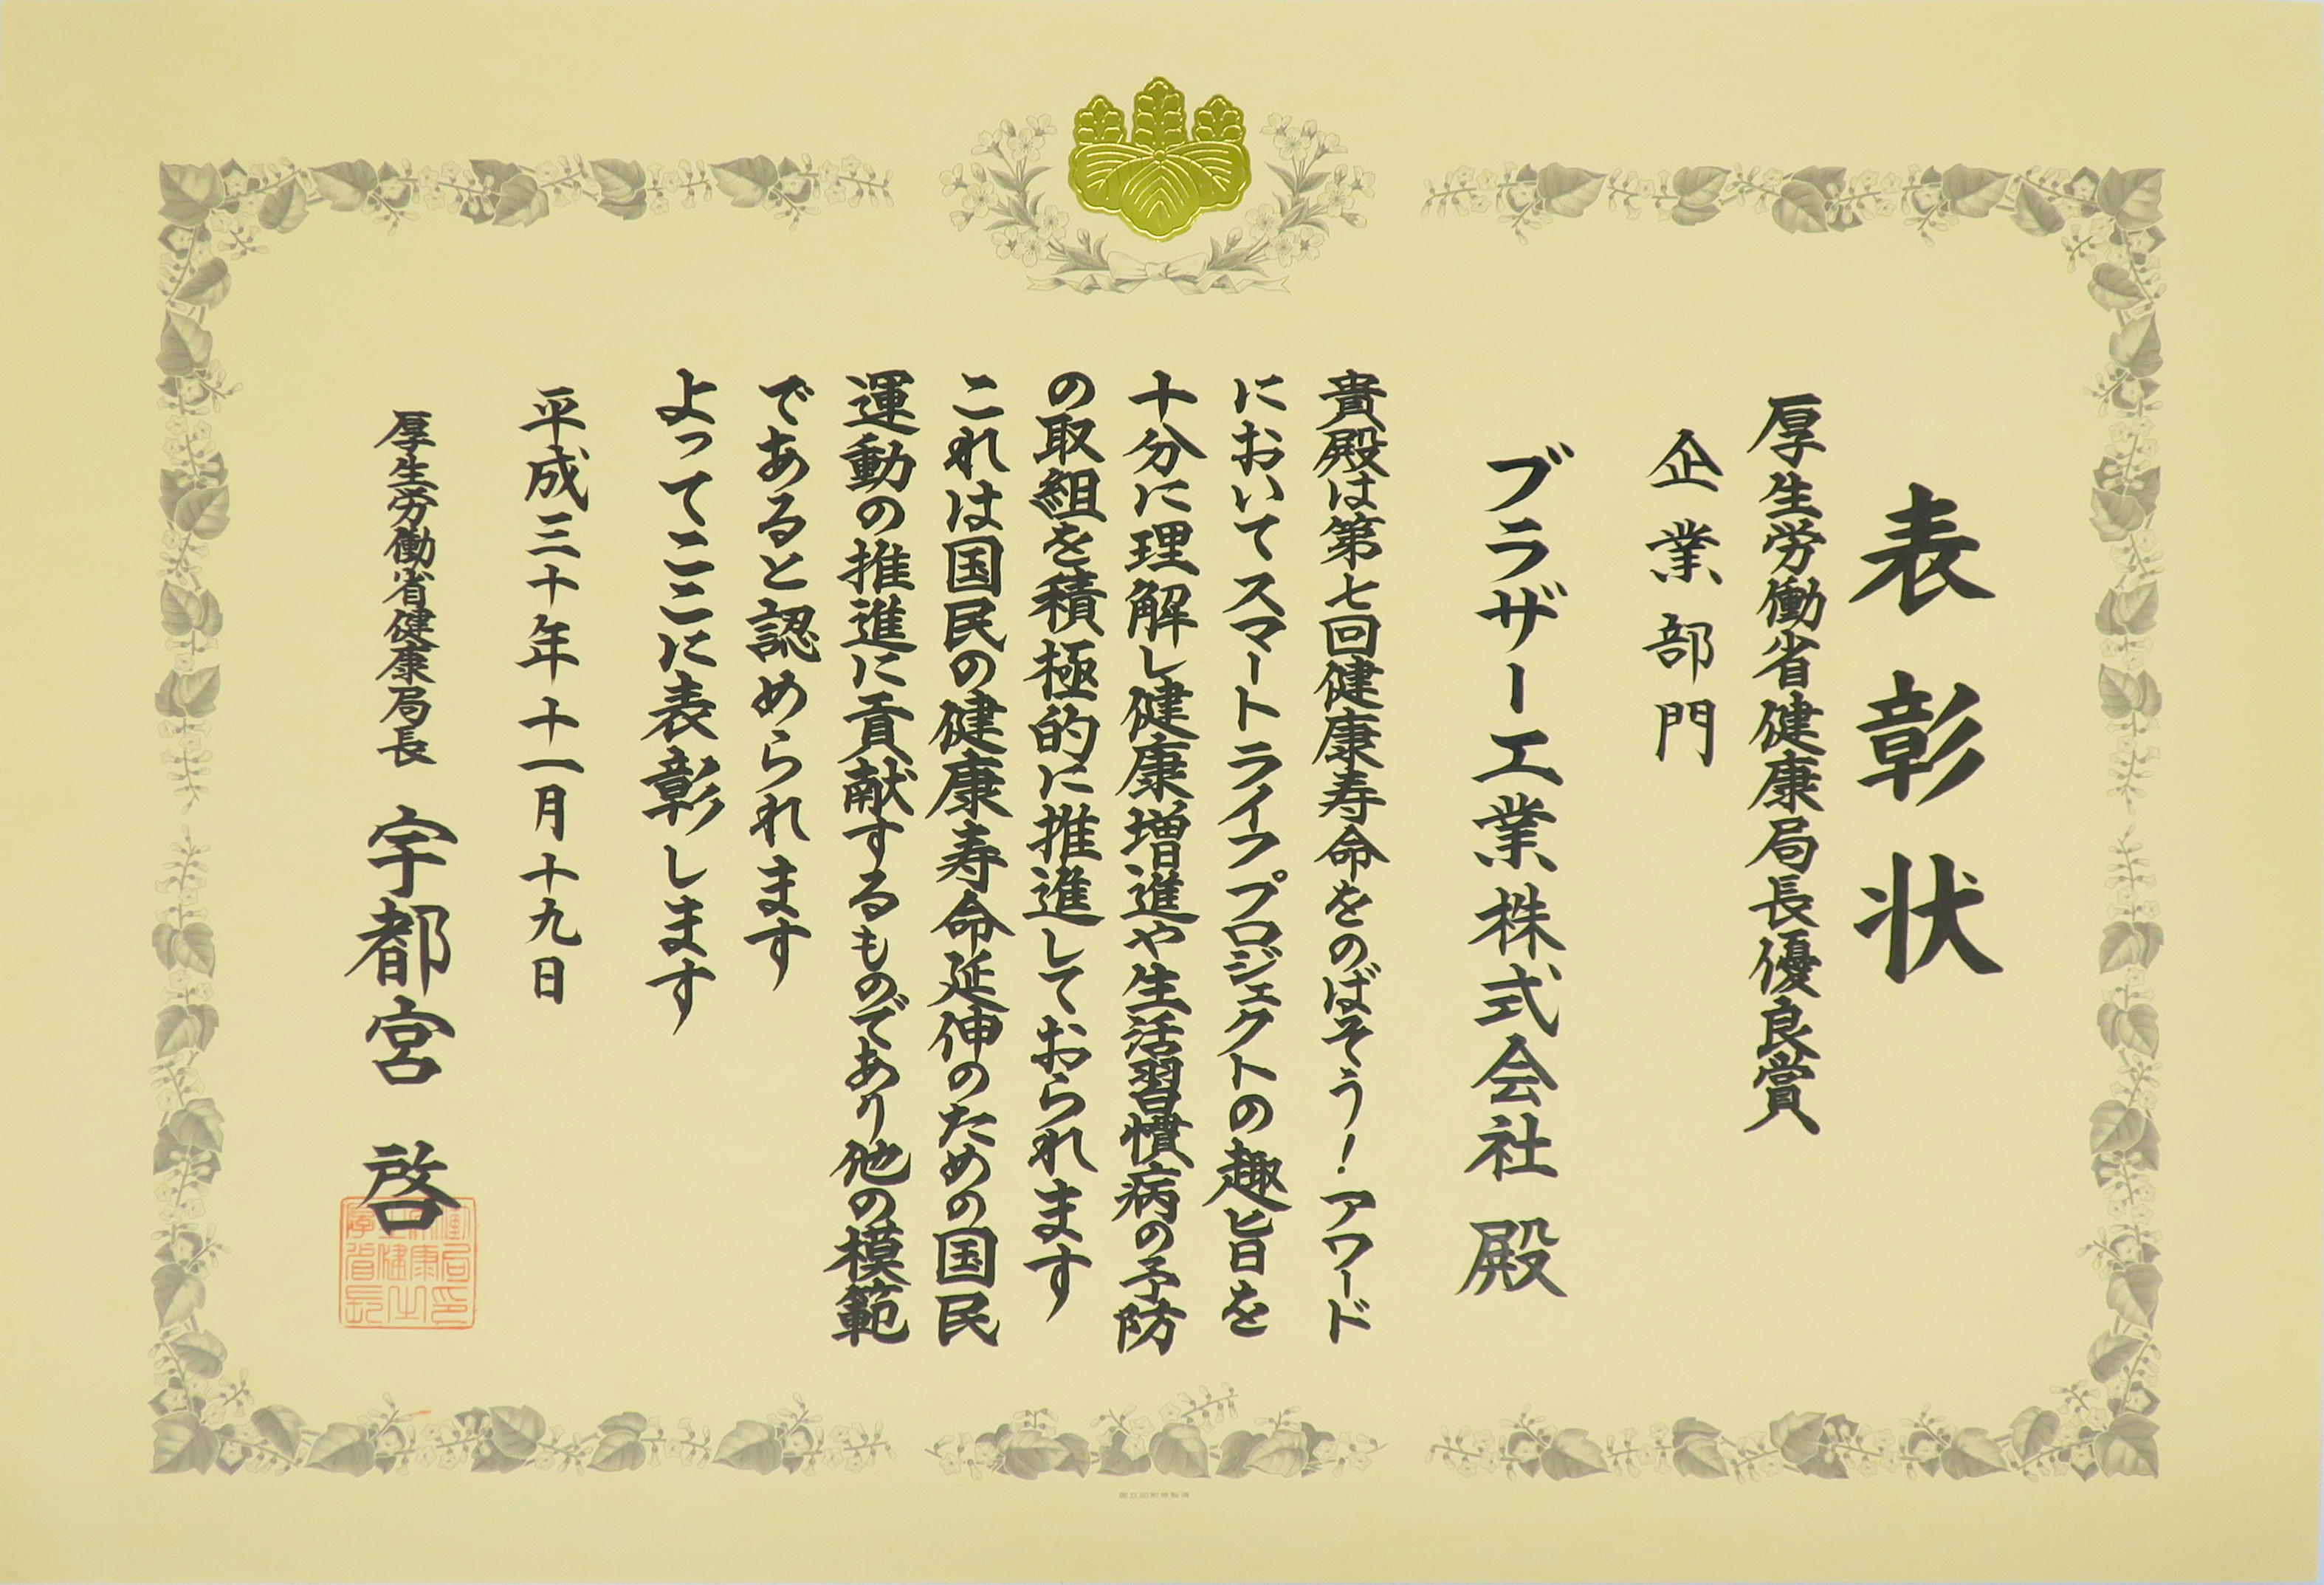 表彰状
厚生労働省健康局長優良賞
企業部門
ブラザー工業株式会社 殿
貴殿は第七回健康寿命をのばそう！アワード
においてスマートライフプロジェクトの趣旨を
十分に理解し健康増進や生活習慣病の予防
の取組を積極的に推進しておられます
これは国民の健康寿命延伸のための国民
運動の推進に貢献するものであり他の模範
であると認められます
よってここに表彰します
平成三十年十一月十九日
厚生労働省健康局長 宇都宮 啓